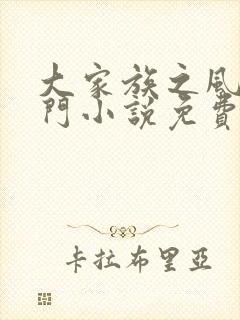 大家族之風
門小說免費
卡拉布里亞